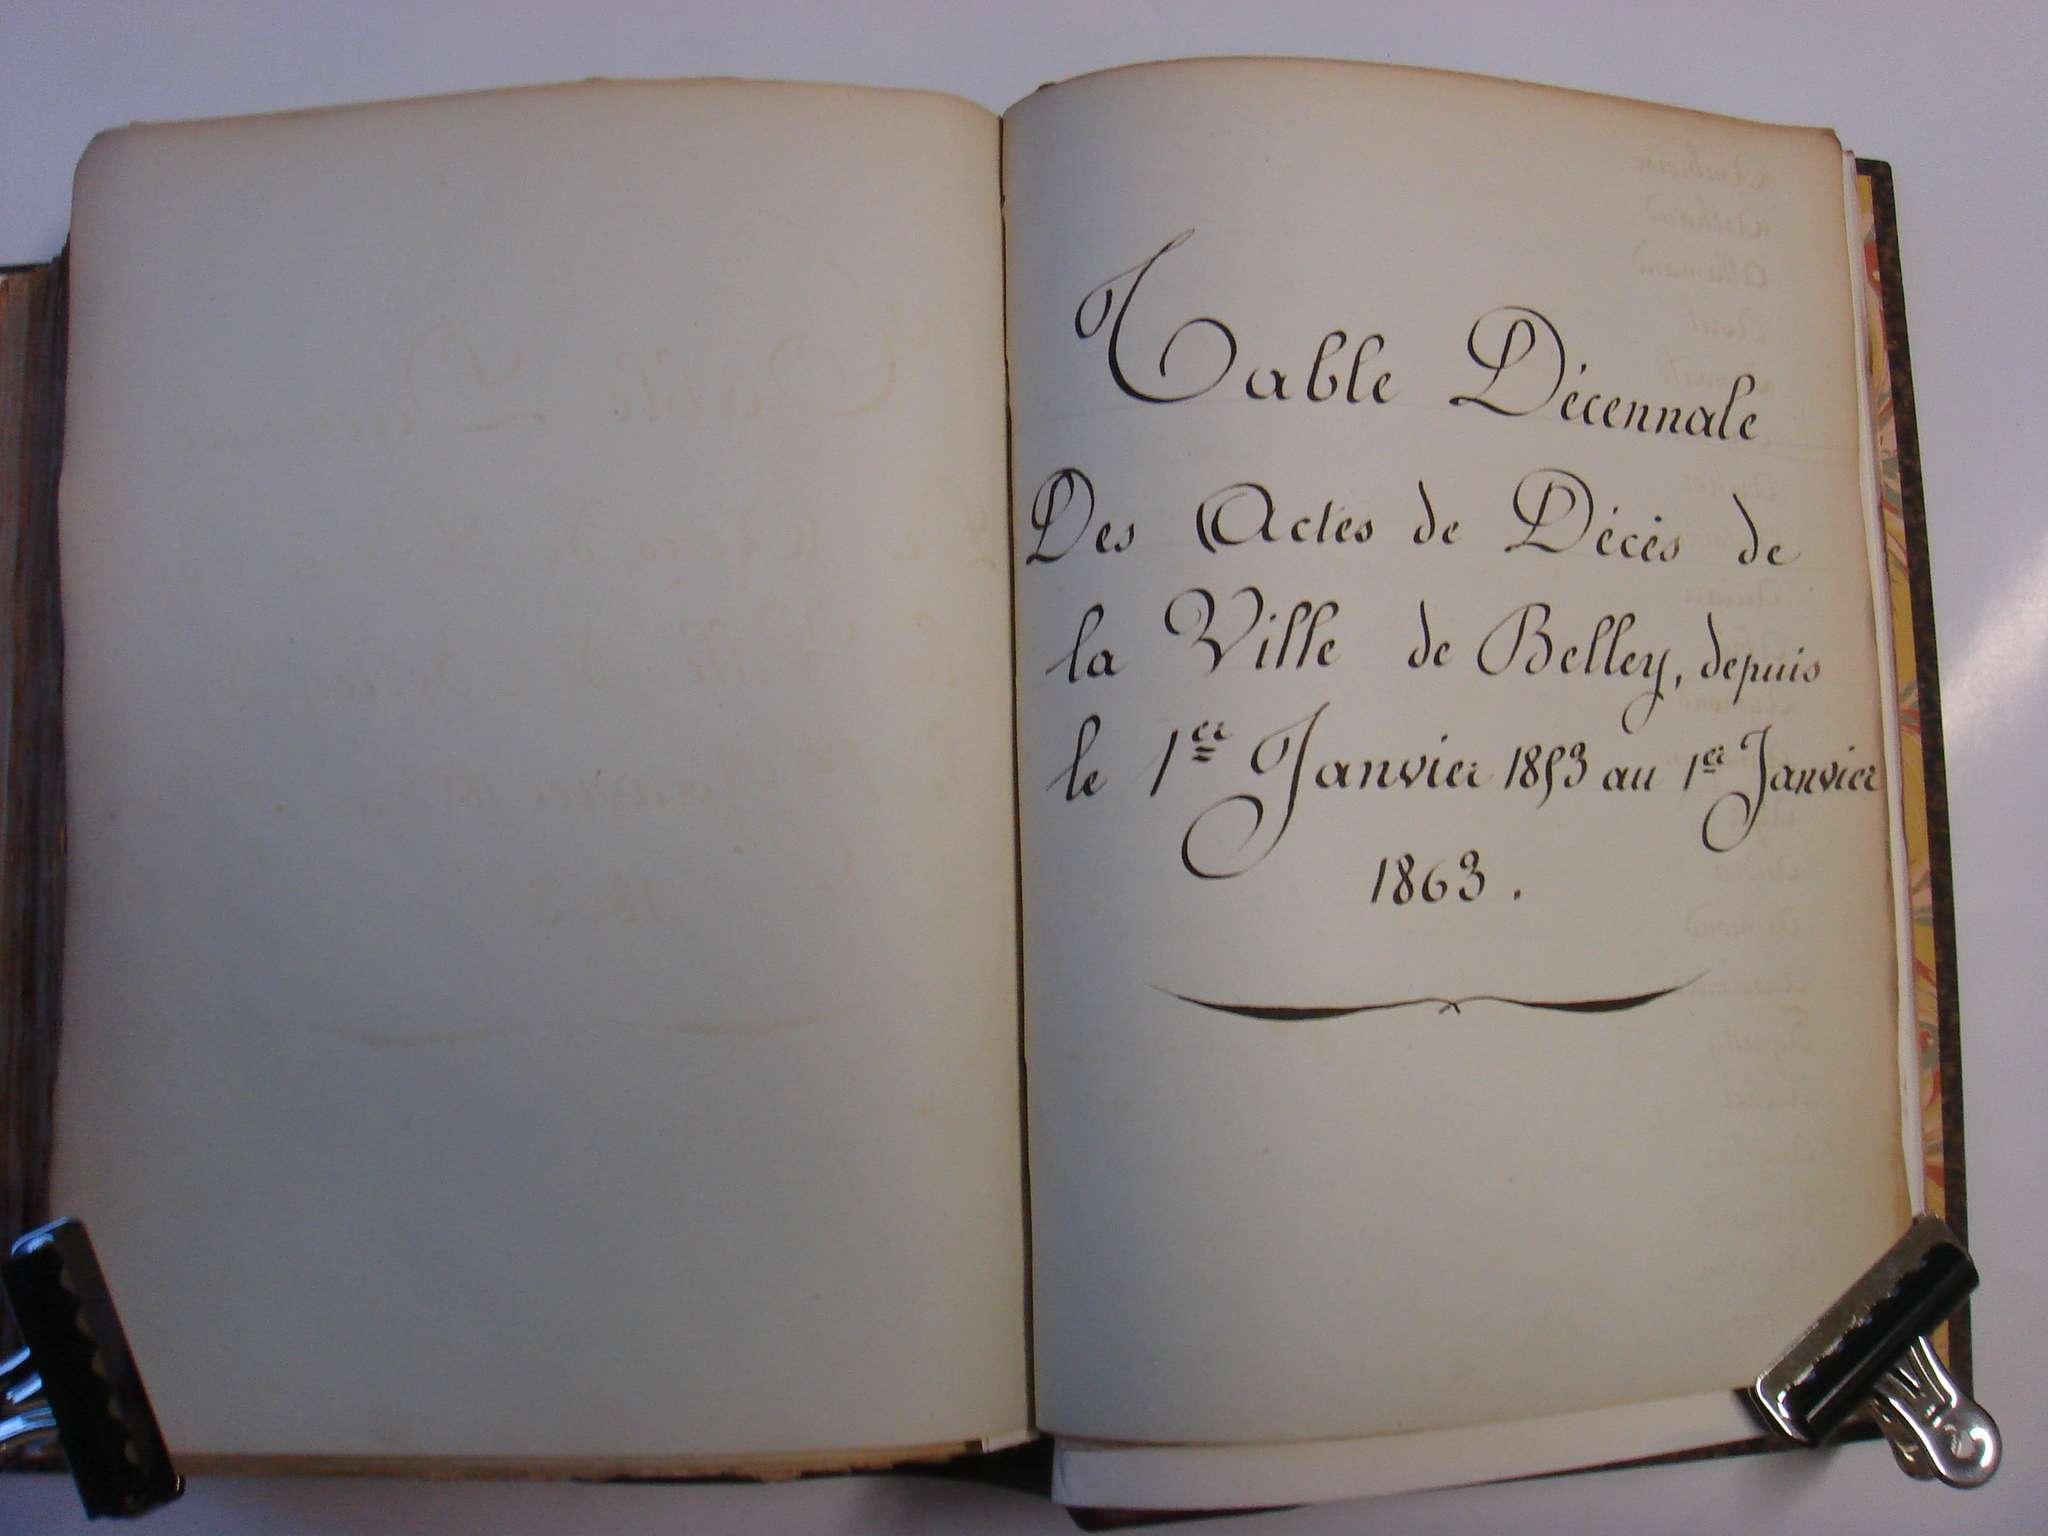 Table Décennale
Des Actes de Décès de
la Ville de Belley, depuis
le 1er Janvier 1853 au 1er Janvier
1863.